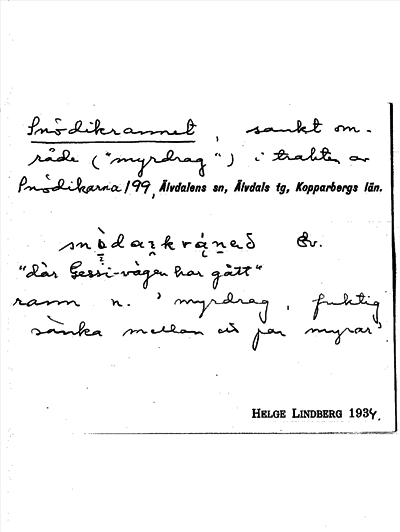 Snödikrannet, sankt om-
råde ("myrdrag") i trakten av
Snödikarna 199, Älvdalens sn, Älvdals tg, Kopparbergs län.
snòdaʒkrǻneð
"där Gessi-vägen har gått"
rann n. 'myrdrag, fuktig
sänka mellan ett par myrar'
HELGE LINDBERG 1934.